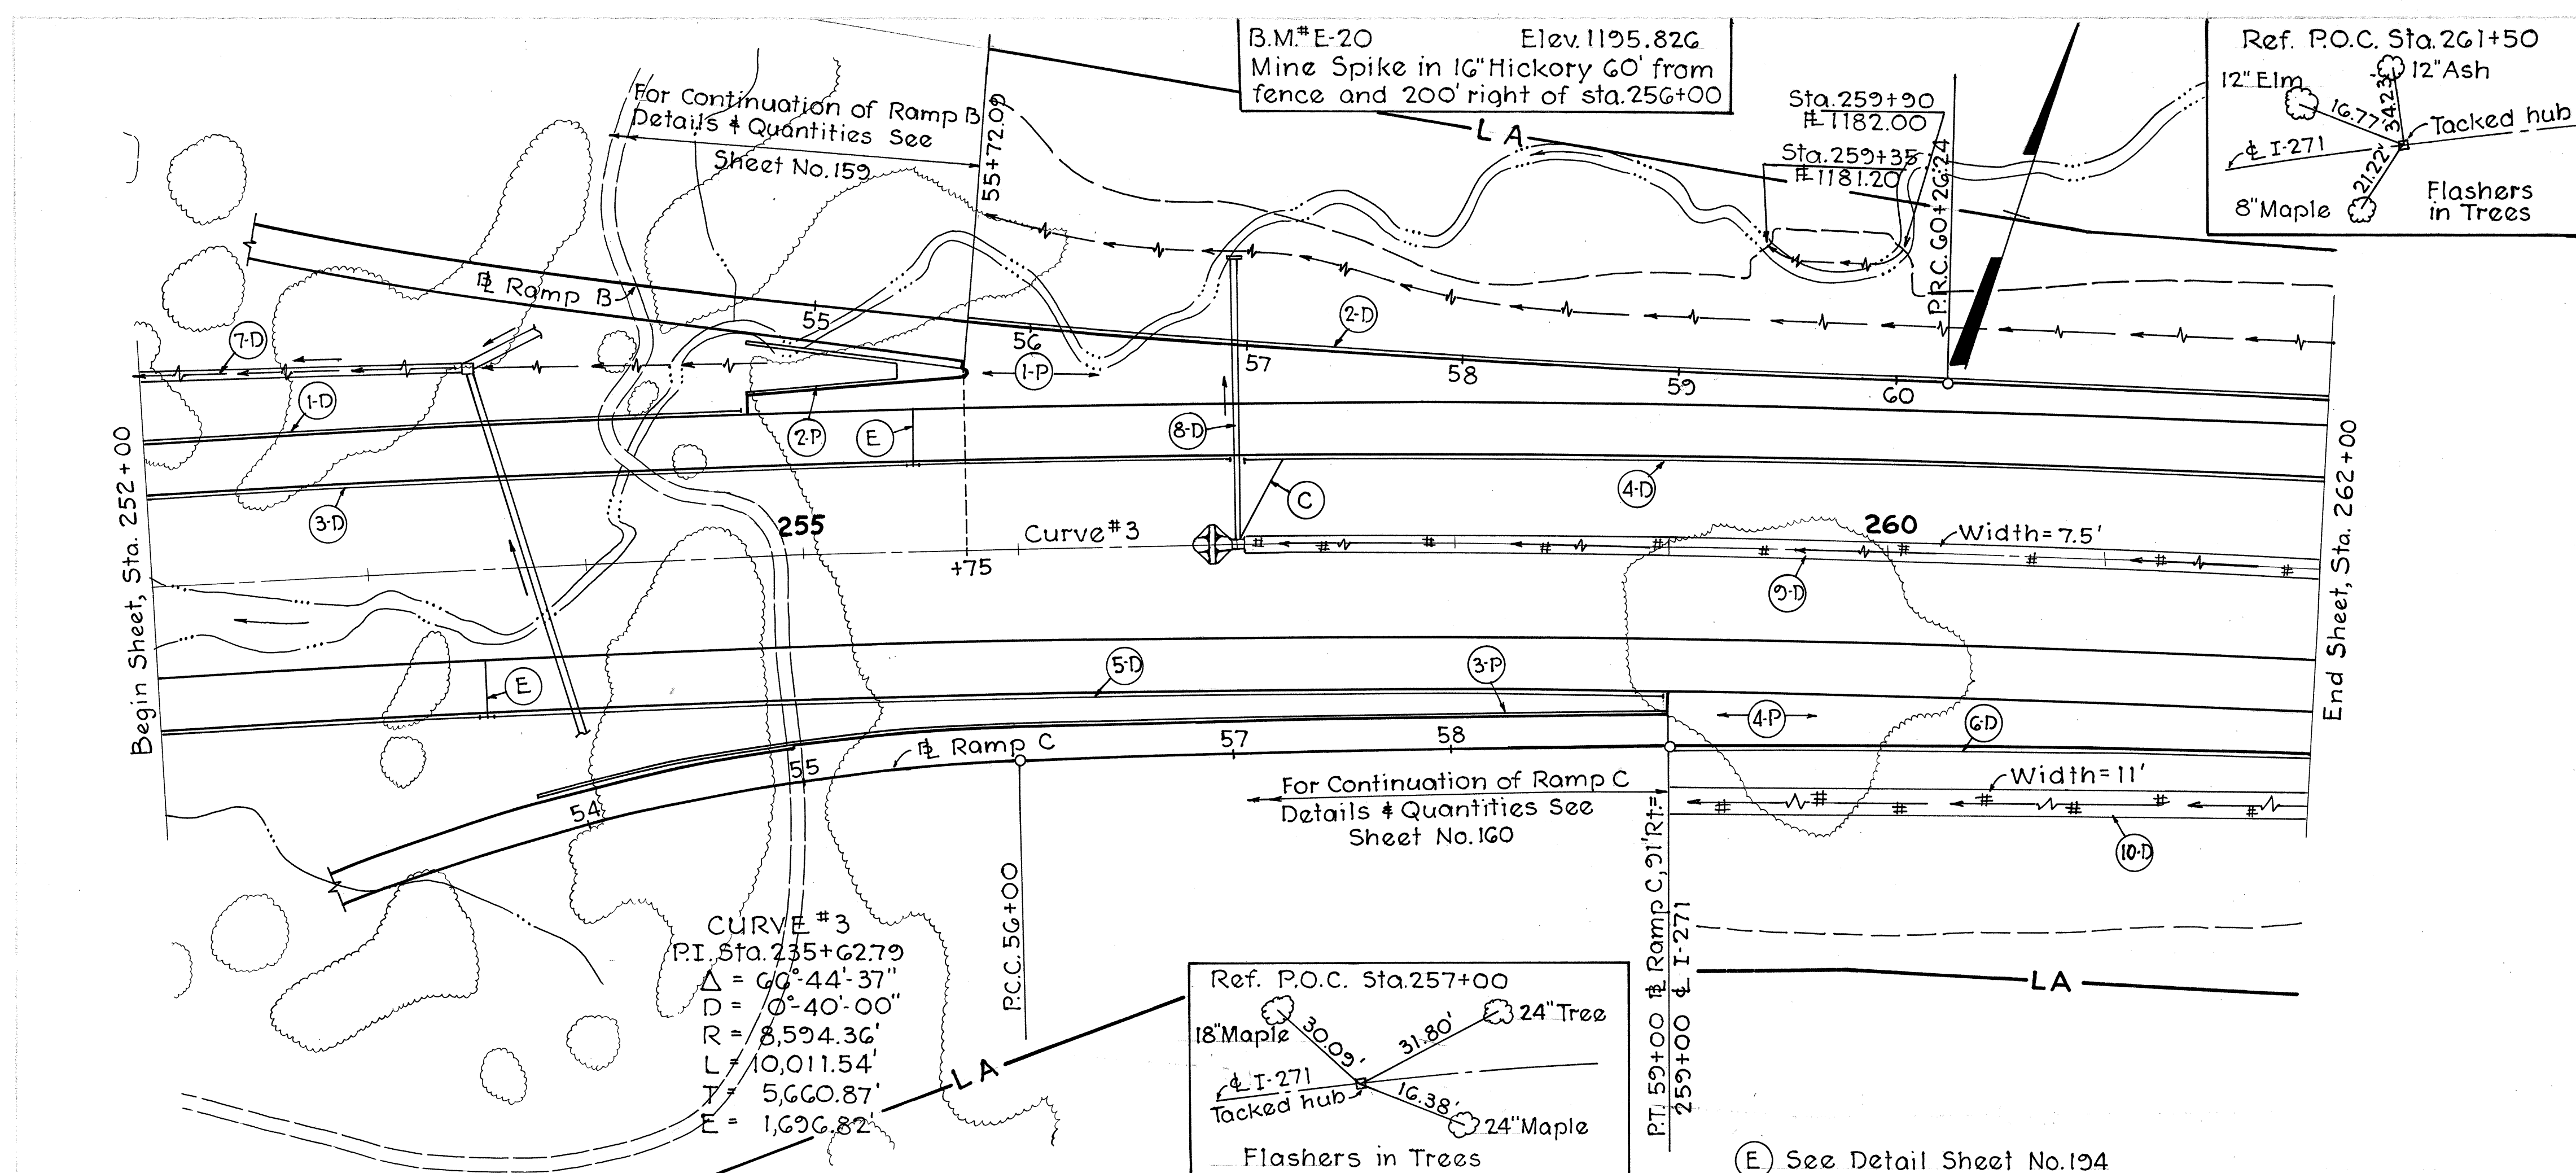 B.M.# E-20 Elev. 1195.826
Mine Spike in 16" Hickory 60' from
fence and 200' right of sta. 256+00
Ref. P.O.C. Sta. 261+50
12" Elm
12" Ash
16.77'
34.23'
Tacked hub
℄ I-271
21.22'
8" Maple
Flashers
in Trees
For Continuation of Ramp B
Details & Quantities See
Sheet No. 159
55+72.09
LA
Sta. 259+90
1182.00
Sta. 259+35
1181.20
P.R.C. 60+26.24
Ramp B
55
56
57
58
59
60
2-D
7-D
1-D
1-P
2-P
E
8-D
3-D
C
4-D
255
Curve #3
+75
260
Width = 7.5'
9-D
Begin Sheet, Sta. 252+00
End Sheet, Sta. 262+00
E
5-D
3-P
4-P
6-D
Ramp C
54
55
57
58
For Continuation of Ramp C
Details & Quantities See
Sheet No. 160
Width = 11'
10-D
P.C.C. 56+00
P.T. 59+00 ℄ Ramp C, 91' Rt. =
259+00 ℄ I-271
CURVE #3
P.I. Sta. 235+62.79
Δ = 66°-44'-37"
D = 0°-40'-00"
R = 8,594.36'
L = 10,011.54'
T = 5,660.87'
E = 1,696.82'
LA
LA
Ref. P.O.C. Sta. 257+00
18" Maple
30.09'
31.80'
24" Tree
℄ I-271
Tacked hub
16.38'
24" Maple
Flashers in Trees
E See Detail Sheet No. 194